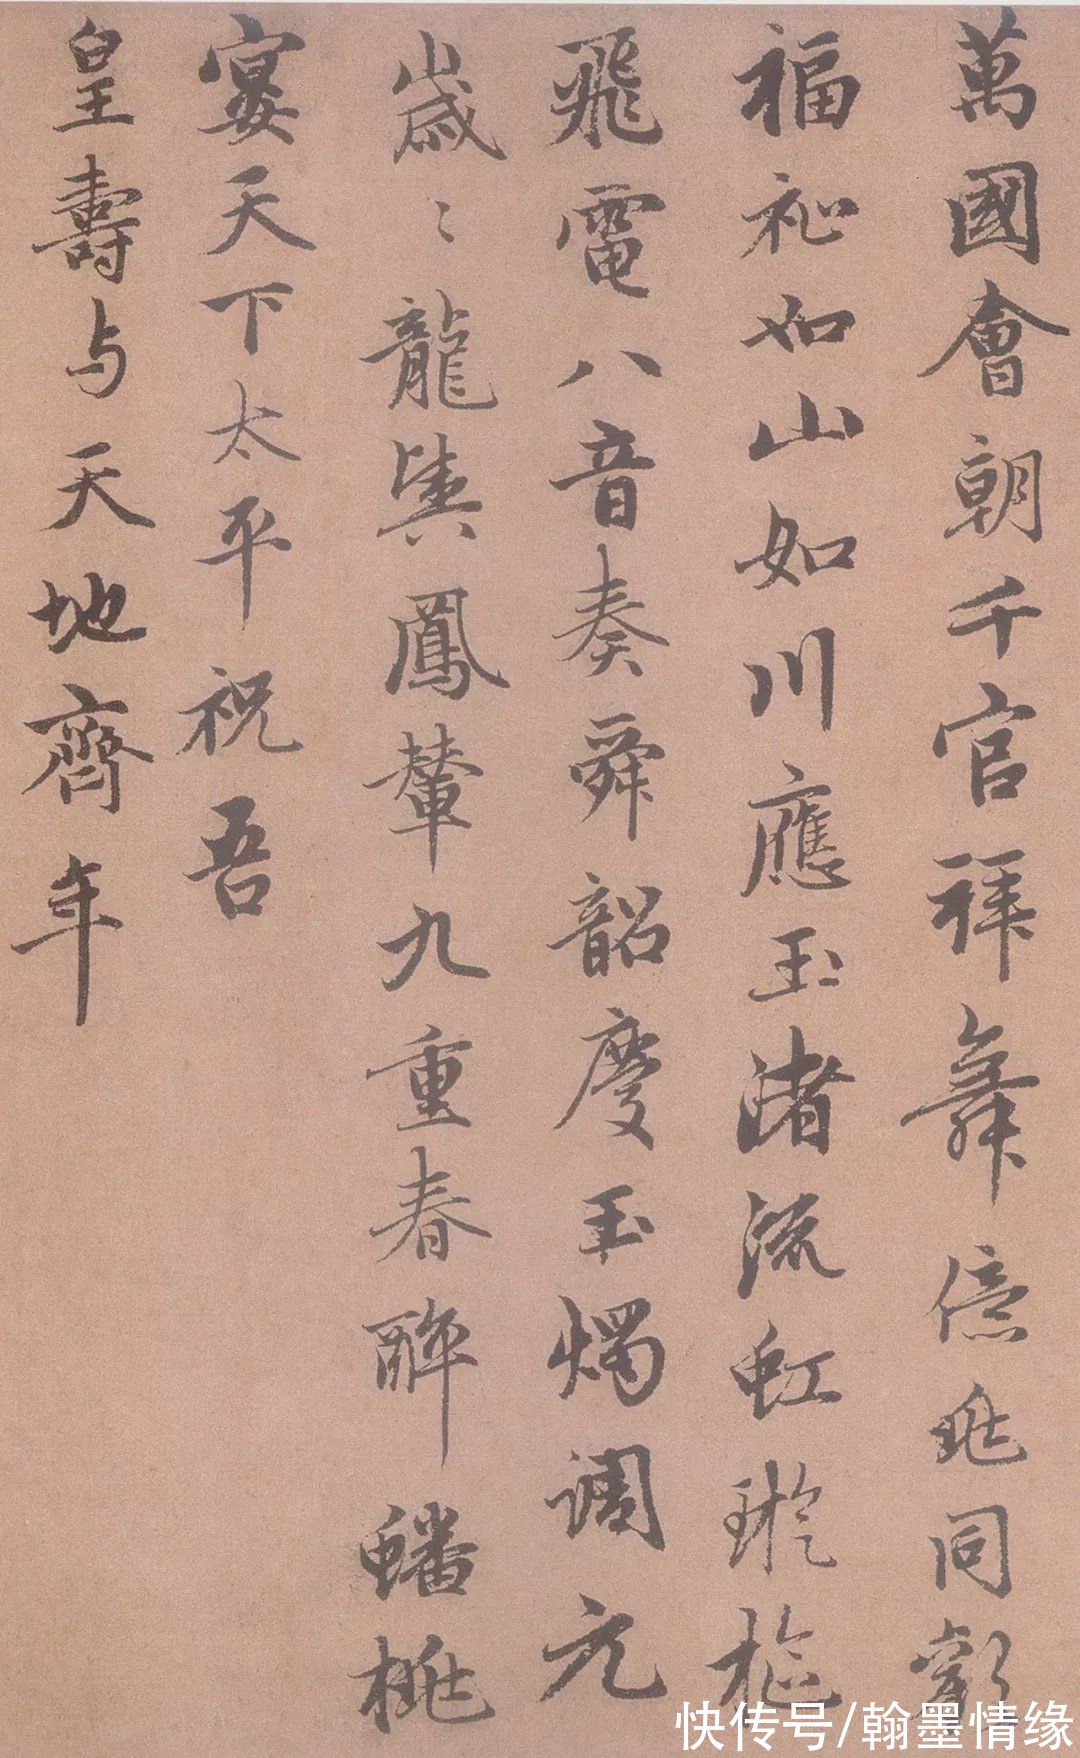 萬國會朝千官拜舞億兆同歡
福祉如山如川應玉渚流虹璇樞
飛電八音奏舜韶慶玉燭調元
歲〻龍輿鳳輦九重春醉蟠桃
宴天下太平祝吾
皇壽与天地齊年
快传号/翰墨情缘